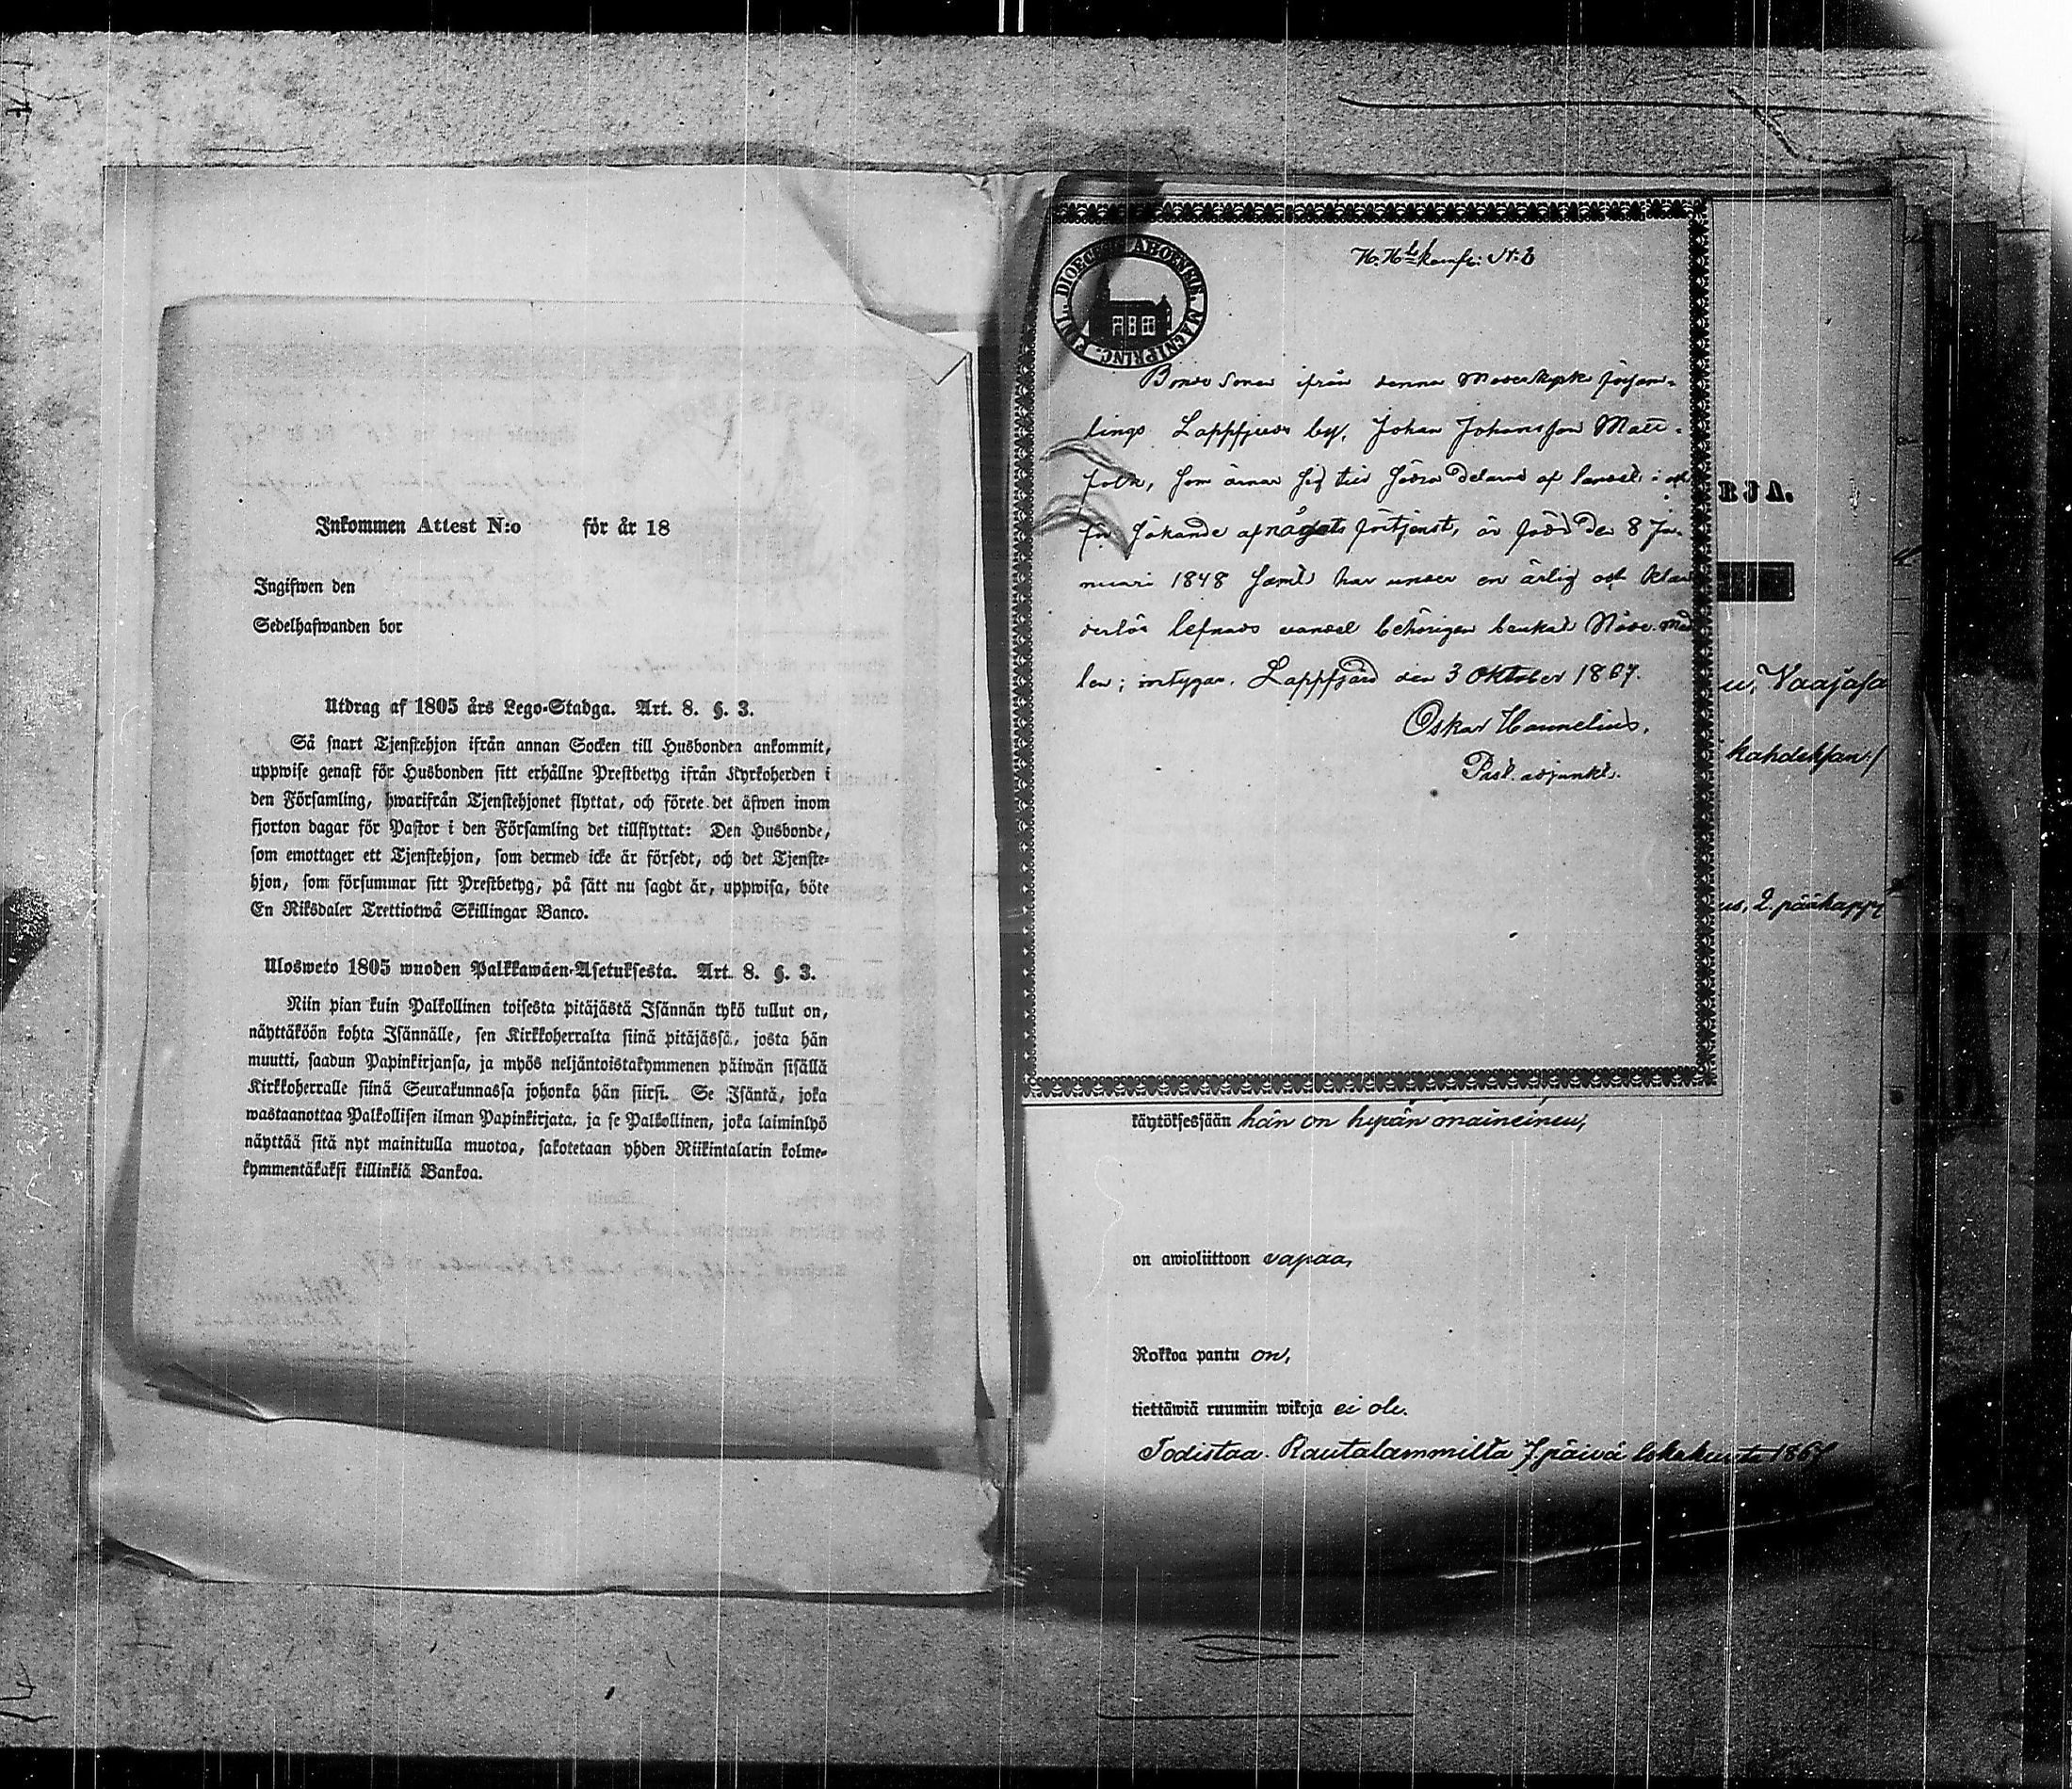 Inkommen Attest N:o för år 18
Ingifwen den
Sedelhafwanden bor
Utdrag af 1805 års Lego-Stadga. Art. 8. §. 3.
Så snart Tjenstehjon ifrån annan Socken till Husbonden ankommit,
uppwise genast för Husbonden sitt erhållne Prestbetyg ifrån Kyrkoherden i
den Församling, hwarifrån Tjenstehjonet flyttat, och förete det äfwen inom
fjorton dagar för Pastor i den Församling det tillflyttat: Den Husbonde,
som emottager ett Tjenstehjon, som dermed icke är försedt, och det Tjenste-
hjon, som försummar sitt Prestbetyg, på sätt nu sagdt är, uppwisa, böte
En Riksdaler Trettiotwå Skillingar Banco.
Ulosweto 1805 wuoden Palkkawäen-Asetuksesta. Art. 8. §. 3.
Niin pian kuin Palkollinen toisesta pitäjästä Isännän tykö tullut on,
näyttäköön kohta Isännälle, sen Kirkkoherralta siinä pitäjässä, josta hän
muutti, saadun Papinkirjansa, ja myös neljäntoistakymmenen päiwän sisällä
Kirkkoherralle siinä Seurakunnassa johonka hän siirsi. Se Isäntä, joka
wastaanottaa Palkollisen ilman Papinkirjata, ja se Palkollinen, joka laiminlyö
näyttää sitä nyt mainitulla muotoa, sakotetaan yhden Riikintalarin kolme-
kymmentäkaksi killinkiä Bankoa.
DIOECES. ABOENSIS. MAGNI PRINC. FINL.
Bonde Sonen ifrån denna Moderkyrko försam-
lings Lappfjerds by, Johan Johansson Matt-
folk, som ämnar sig till södra delarne af landet i och
för sökande af något förtjenst, är född den 8 Ja-
nuari 1848 samt har under en ärlig och klan
derlös lefnads vandel behörigen bevakat Nåde med
len; intygar. Lappfjärd den 3 Oktober 1867.
Oskar Hannelius.
Past. adjunkt.
RJA.
Vaajasa
kahdeksan
2. pääkapp
käytöksessään hän on hyvän maineinen,
on awioliittoon vapaa,
Rokkoa pantu on,
tiettäwiä ruumiin wikoja ei ole.
Todistaa. Rautalammilta 7 päivä lokakuuta 1867